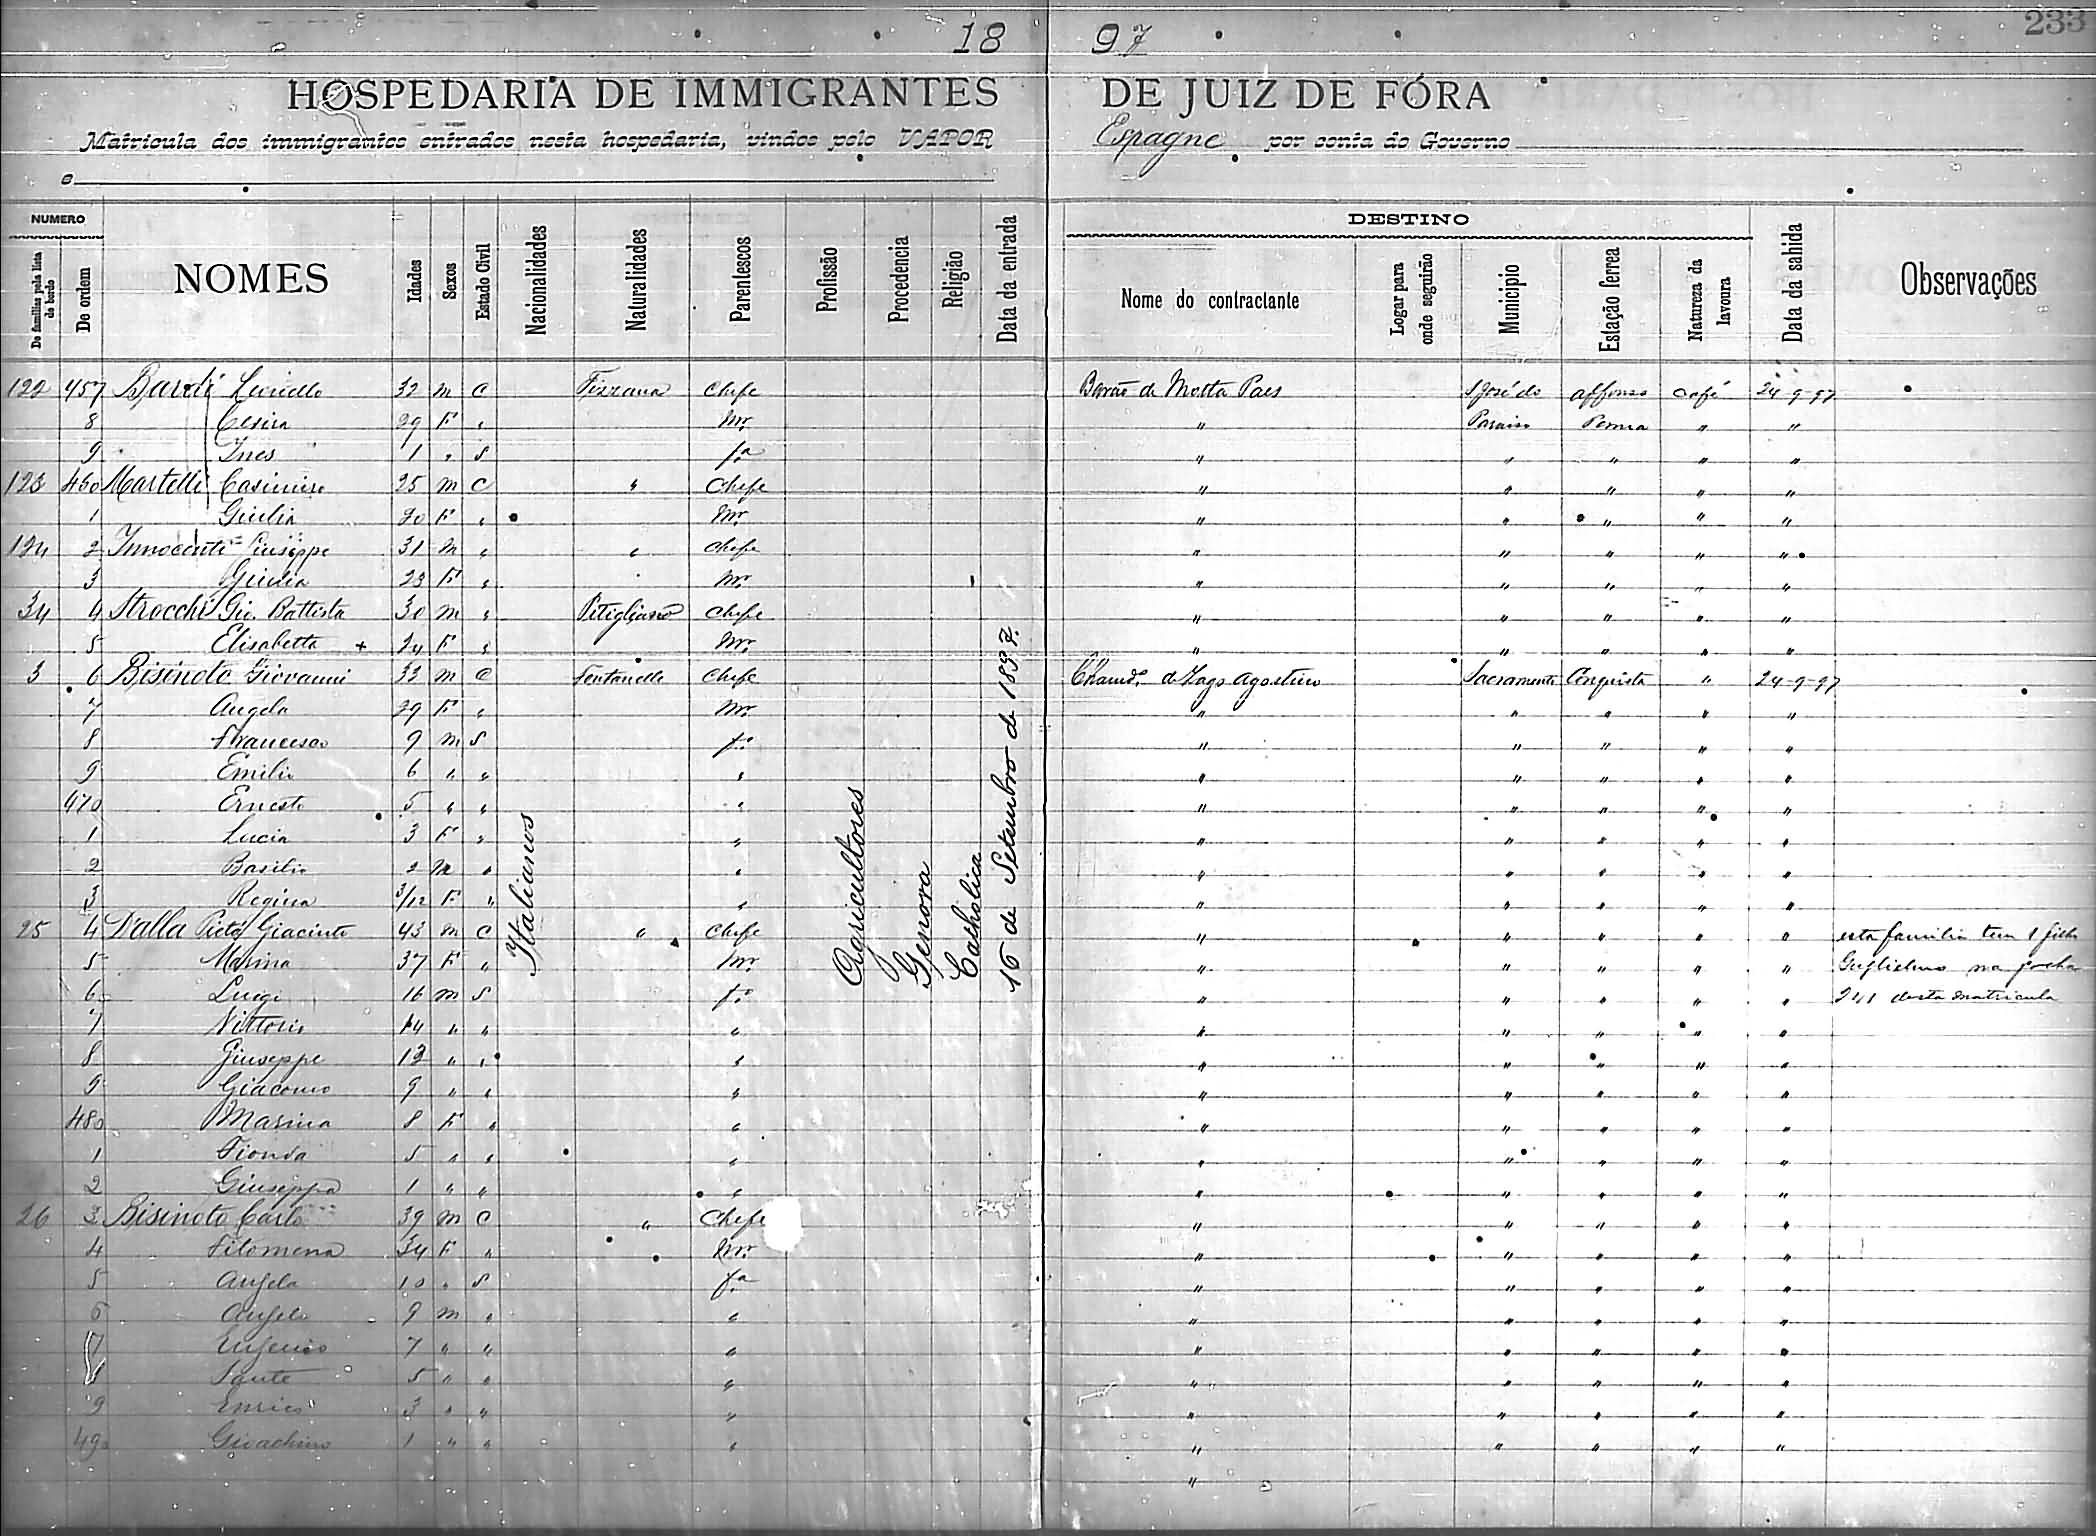 233
18 97
HOSPEDARIA DE IMMIGRANTES DE JUIZ DE FÓRA
Matricula dos immigrantes entrados nesta hospedaria, vindos pelo VAPOR Espagne por conta do Governo
e
NUMERO
DESTINO
De familias pela lista de bordo
De ordem
NOMES
Idades
Sexos
Estado Civil
Nacionalidades
Naturalidades
Parentescos
Profissão
Procedencia
Religião
Data da entrada
Nome do contractante
Logar para onde seguirão
Municipio
Estação ferrea
Natureza da lavoura
Data da sahida
Observações
122 457 32 m C Chefe Barão de Motta Paes S José do Affonso café 24-9-97
8 Cesira 29 F " Mr. " Paraiso Penna " "
9 Ines 1 " S fa " " " " "
123 460 Martelli Casimiro 25 m C " Chefe " " " " "
1 Giulia 20 F " Mr. " " " " "
124 2 Innocenti Giuseppe 31 m " " Chefe " " " " "
3 Giulia 23 F " Mr. " " " " "
34 4 Strocchi Gio. Battista 30 m " Pitigliano Chefe " " " " "
5 Elisabetta + 24 F " Mr. " " " " "
3 6 Bisinoto Giovanni 33 m C Fontanelle Chefe Zago Agostino Sacramento Conquista " 24-9-97
7 Angela 29 F " Mr. " " " " "
8 Francesco 9 m S fo " " " " "
9 Emilio 6 " " " " " " " "
470 Ernesto 5 " " " " " " " "
1 Lucia 3 F " " " " " " "
2 Basilio 2 m " " " " " " "
3 Regina 3/12 F " " " " " " "
25 4 Dalla Pietá Giacinto 43 m C " Chefe " " " " " esta familia tem 1 filho
5 Marina 37 F " Mr. " " " " " Guglielmo na
6 Luigi 16 m S fo " " " " " 241 desta matricula
7 Vittorio 14 " " " " " " " "
8 Giuseppe 12 " " " " " " " "
9 Giacomo 9 " " " " " " " "
480 Marina 8 F " " " " " " "
1 5 " " " " " " " "
2 Giuseppa 1 " " " " " " " "
26 3 Bisinoto Carlo 39 m C " Chefe " " " " "
4 Filomena 34 F " Mr. " " " " "
5 Angela 10 " S fa " " " " "
6 Angelo 9 m " " " " " " "
7 Eugenio 7 " " " " " " " "
8 Sante 5 " " " " " " " "
9 Enrico 3 " " " " " " " "
490 Gioachino 1 " " " " " " " "
"
Italianos
Agricultores
Genova
Catholica
16 de Setembro de 1897.